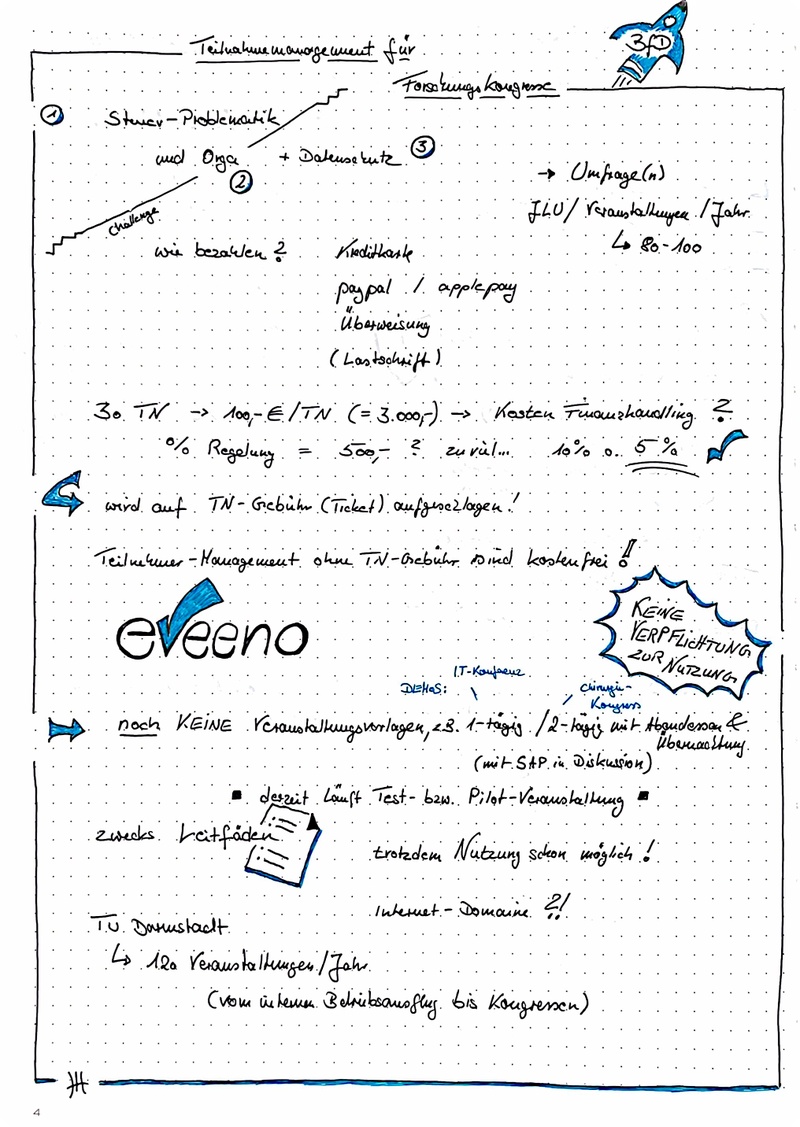 Teilnahmemanagement für
Forschungskongresse
BfD
1 Steuer-Problematik
und Orga + Datenschutz 3
2
challenge
→ Umfrage(n)
JLU / Veranstaltungen / Jahr
↳ 80-100
wie bezahlen? Kreditkarte
paypal / applepay
Überweisung
(Lastschrift)
30 TN → 100,-€/TN (= 3.000,-) → Kosten Finanzhandling ?
% Regelung = 500,- ? zuviel... 10% o. 5% ✓
wird auf TN-Gebühr (Ticket) aufgeschlagen!
Teilnehmer-Management ohne TN-Gebühr sind kostenfrei!
eveeno
KEINE
VERPFLICHTUNG
ZUR NUTZUNG
I.T-Konferenz
DEHaS:
Chirurgie-
Kongress
noch KEINE Veranstaltungsvorlagen, z.B. 1-tägig / 2-tägig mit Abendessen &
Übernachtung
(mit SAP in Diskussion)
▪ derzeit läuft Test- bzw. Pilot-Veranstaltung ▪
zwecks Leitfäden
trotzdem Nutzung schon möglich!
Internet-Domaine ?!
TU Darmstadt
↳ 120 Veranstaltungen / Jahr
(vom internen Betriebsausflug bis Kongressen)
4